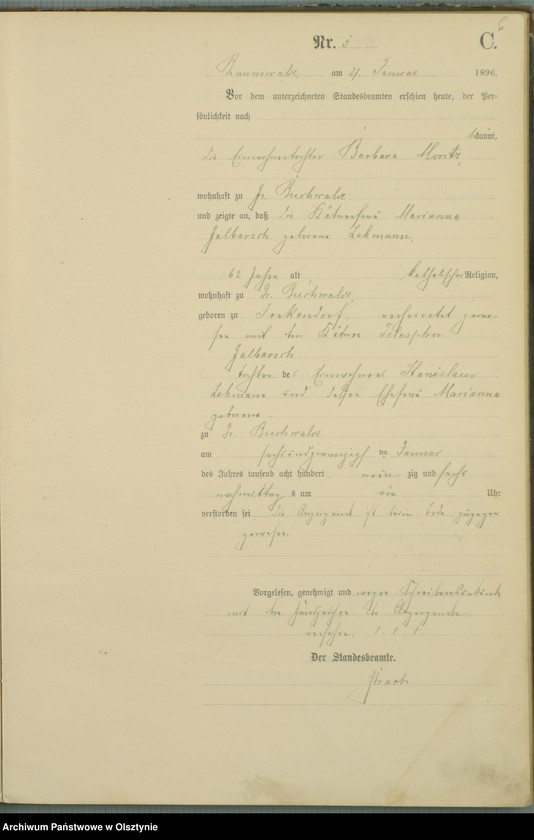 6
Nr. 5 C.
am 27. Januar 1896.
Vor dem unterzeichneten Standesbeamten erschien heute, der Per-
sönlichkeit nach
bekannt,
die Einwohnertochter Barbara Moritz,
wohnhaft zu Gr. Buchwalde
und zeigte an, daß die Kätnerfrau Marianna
geborene Lehmann,
62 Jahre alt, katholischer Religion,
wohnhaft zu Gr. Buchwalde,
geboren zu Jonkendorf, verheiratet gewe-
sen mit dem Kätner
Tochter des Einwohners Stanislaus
Lehmann und dessen Ehefrau Marianna
geborene -
zu Gr. Buchwalde
am sechsundzwanzigsten Januar
des Jahres tausend acht hundert neunzig und sechs
nachmittags um vier Uhr
verstorben sei. Die Anzeigende ist beim Tode zugegen
gewesen.
Vorgelesen, genehmigt und wegen Schreibensunkunde
mit dem Handzeichen der Anzeigenden
versehen. † † †
Der Standesbeamte.
Archiwum Państwowe w Olsztynie